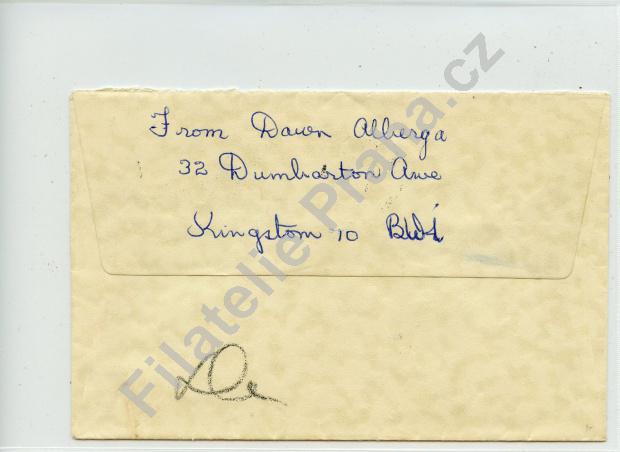 From Dawn Alberga
32 Dumbarton Ave
Kingston 10 BWI
Filatelie Praha.cz